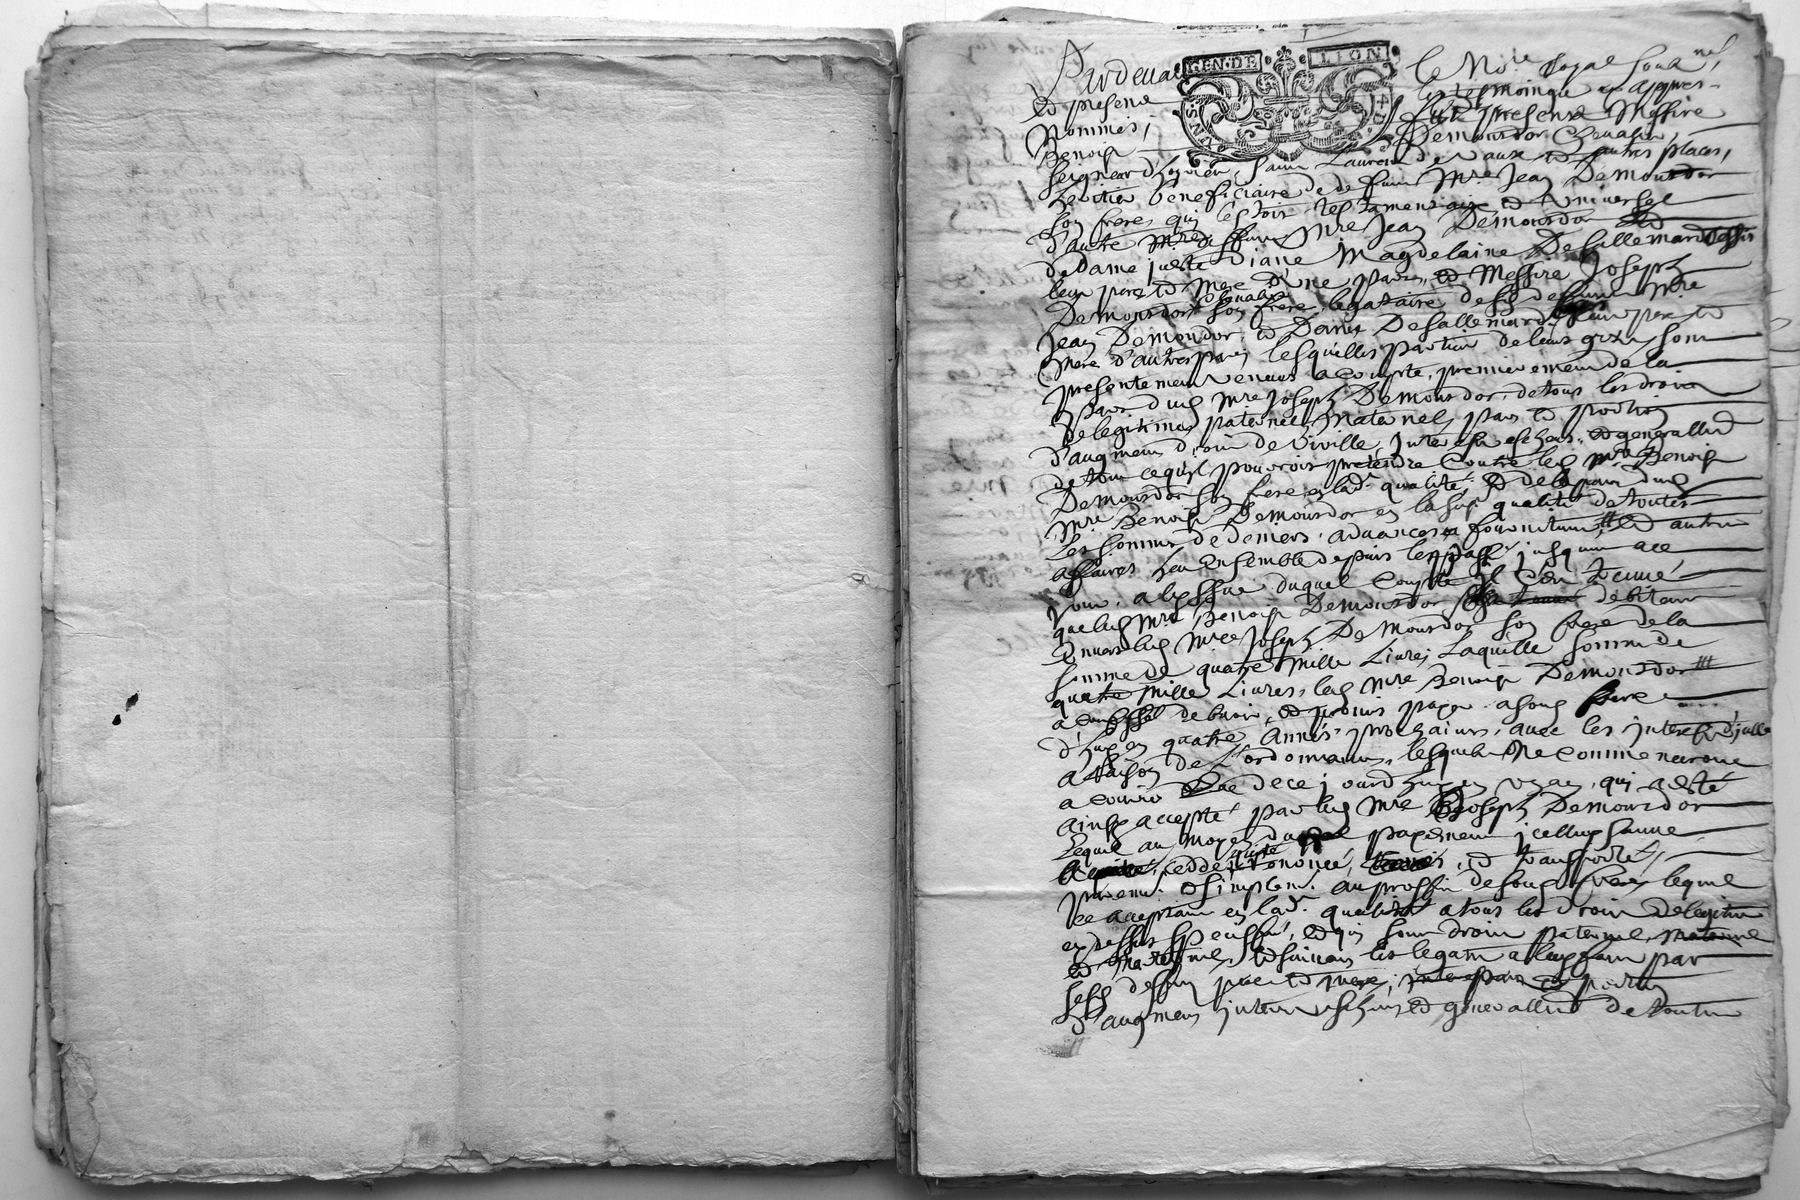 Pardevant le No.re Royal soub.né
GEN.DE LION
UNS. 4.D
et presens les tesmoings cy apres
Nommés, fut present Messire
Benoist Demourdor Chevalier,
Seigneur d' Saint Laurent de Vaux et autres places,
heritier beneficiaire de deffunt Mre Jean Demourdor
son frere, qui lestoit testamentaire et universel
d'autre Mre deffunt Mre Jean Demourdor et
de Dame juste Diane Magdelaine Desallemard
leur pere et mere d'une part, et Messire Joseph
Demourdor chevalier son frere, legataire desd. deffunt Mre
Jean Demourdor et Dame Desallemard leur pere et
mere d'autre part, lesquelles parties de leurs gré sont
presentement venues a compte, premierement de la
part dud. Mre Joseph Demourdor, de tous les droits
de legitimes paternels, Maternels, part et portion
d'augment, droit de Viville, interest eschus, et generallement
de tout ce quil pouvoit pretendre contre led. Mre Benoist
Demourdor son frere, en lad. qualité, et de la part dud.
Mre Benoist Demourdor en la susd. qualité de toutes
Les sommes de deniers, advances, fournitures, et autres
affaires heu Ensemble depuis le passé jusques a ce
jour, a lissue duquel Compte il sest treuvé
que led. Mre Benoist Demourdor debiteur
Envers led. Mre Joseph Demourdor son frere de la
somme de quatre mille Livres, Laquelle somme de
quatre mille Livres, led. Mre Benoist Demourdor
a confessé debvoir, et promis payer a sond. frere
d'huy en quatre années prochaines, avec les interest d'icelle
a Raison de l'ordonnance, lesquels Ne commenceront
a courir que de ce jourdhuy en un an, qui a esté
ainsy accepté par led. Mre Joseph Demourdor
Lequel au moyen du payement icelluy sauve
quitté, cedde, renoncé, et transporté,
purem.t et simplem.t au proffit de sond. frere, lequel
ce acceptant en lad. qualité a tous les droits de legitime
cy dessus speciffié, et qui sont droit paternel,
et maternel, et suivant les legats a luy faits par
sesd. deffunt pere et mere, portion
d'augment, interest eschus et generallement de toutes